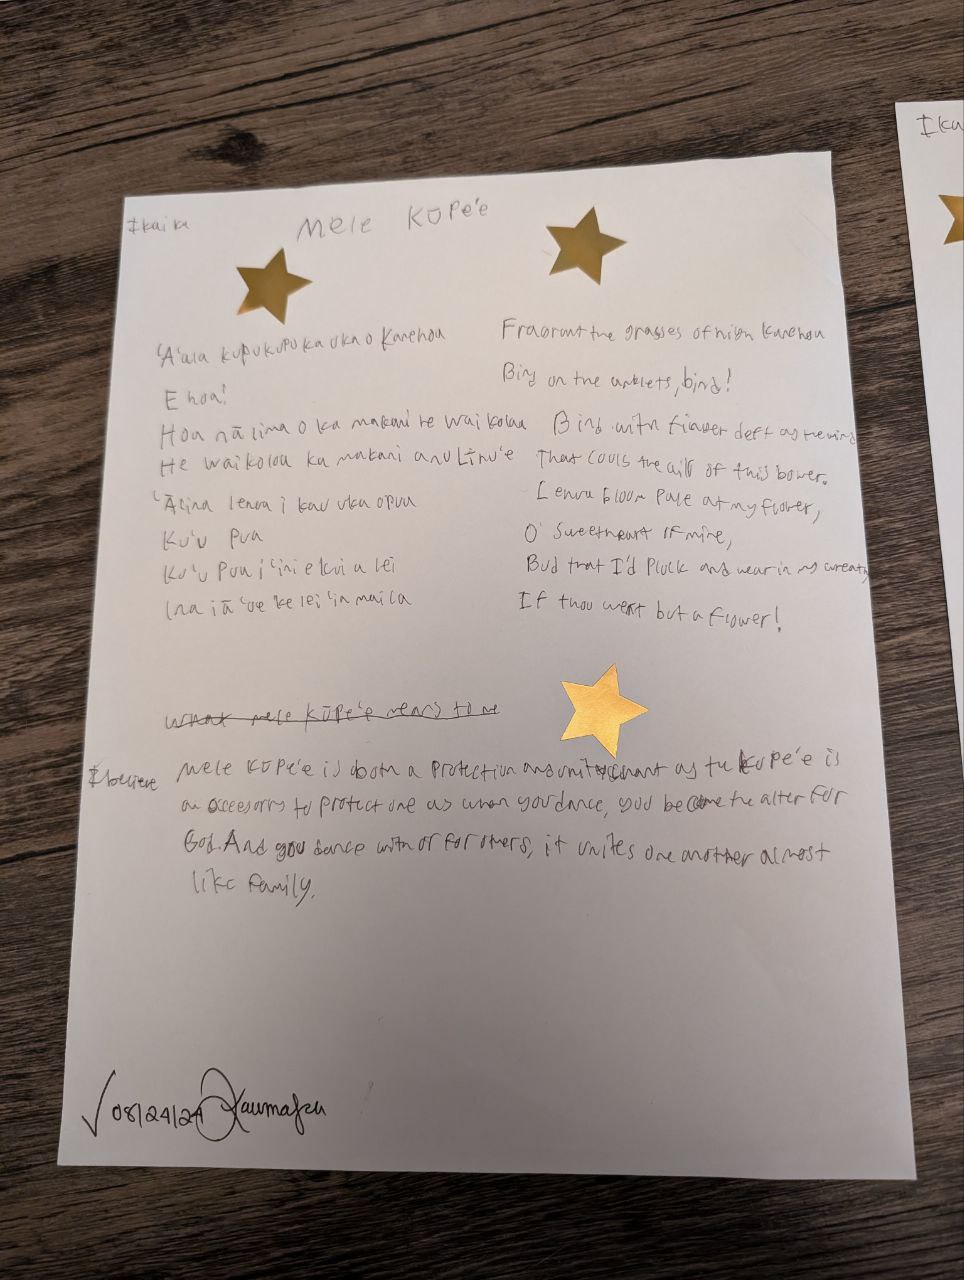 Ikaika
Mele Kūpe'e
'A'ala kupukupu ka uka o Kanehoa
E hoa!
Hoa nā lima o ka makani he waikoloa
He waikoloa ka makani anu Līhu'e
'Ālina lehua i kau uka opua
Ku'u pua
Ku'u pua i 'ini e kui a lei
Ina iā 'oe ke lei 'ia maila
Fragrant the grasses of high Kanehoa
Bind on the anklets, bind!
Bind with finger deft as the wind
That cools the air of this bower.
Lehua bloom pale at my flower,
O' Sweetheart of mine,
Bud that I'd Pluck and wear in my wreath
If thou wert but a flower!
What mele kūpe'e means to me
I believe Mele Kūpe'e is both a protection and unity chant as the kūpe'e is
an accesorry to protect one as when you dance, you become the alter for
God. And you dance with or for others, it unites one another almost
like family.
08/24/24
Ika